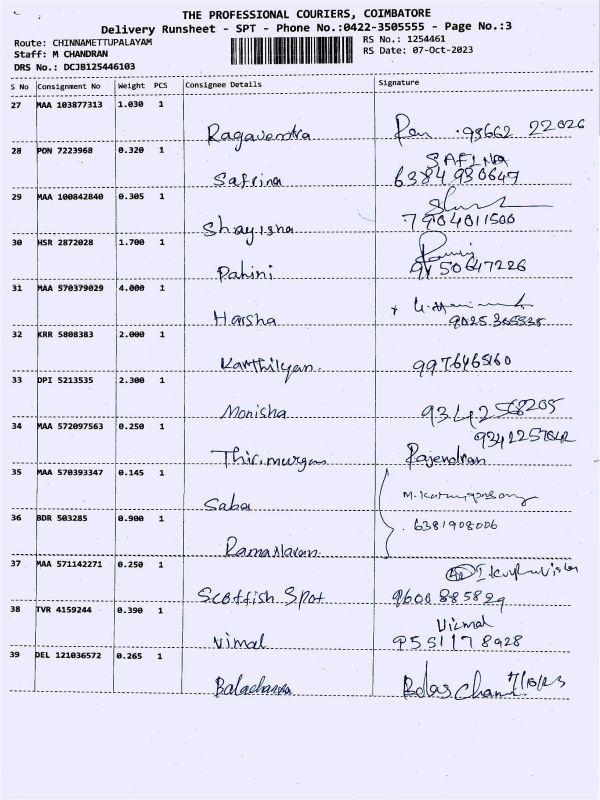 THE PROFESSIONAL COURIERS, COIMBATORE
Delivery Runsheet - SPT - Phone No.:0422-3505555 - Page No.:3
Route: CHINNAMETTUPALAYAM RS No.: 1254461
Staff: M CHANDRAN RS Date: 07-Oct-2023
DRS No.: DCJB125446103
S No Consignment No Weight PCS Consignee Details Signature
27 MAA 103877313 1.030 1
Ragavendra 98662 22026
28 PON 7223968 0.320 1 SAFINA
Safrina 6384 930647
29 MAA 100842840 0.305 1
Shayisha 7904011500
30 HSR 2872028 1.700 1
Pahini 9150647226
31 MAA 570379029 4.000 1
Harsha 9025
32 KRR 5808383 2.000 1
Karthikyan 9976465160
33 DPI 5213535 2.300 1
Monisha 9342568205
34 MAA 572097563 0.250 1
Thirimurgan Rajendran
35 MAA 570393347 0.145 1
Saba
36 BDR 503285 0.900 1 6381908006
Ramanavan
37 MAA 571142271 0.250 1
Scottish Spot 9600885829
38 TVR 4159244 0.390 1 Vizmal
Vimal 9551178928
39 DEL 121036572 0.265 1 7/10/23
Balachanra